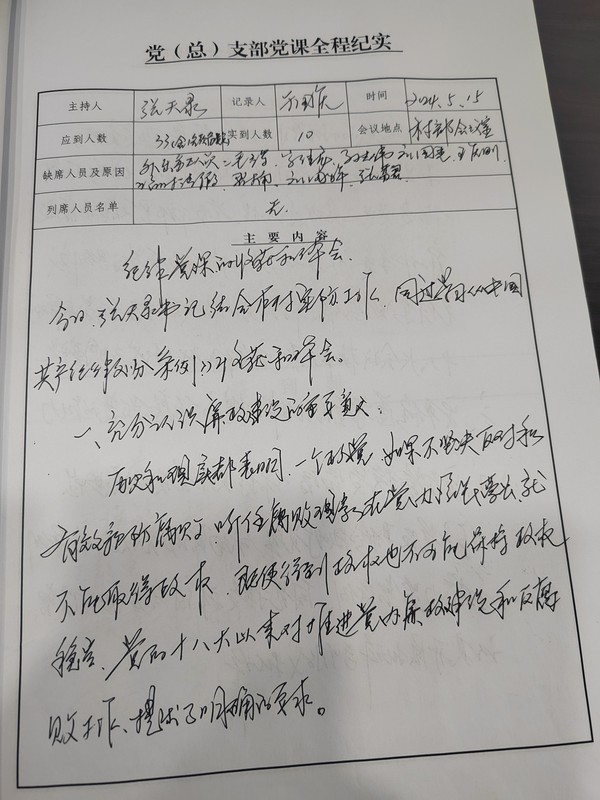 党（总）支部党课全程纪实
主持人 张天录 记录人 时间 2024.5.15
应到人数 33 实到人数 10 会议地点 村部会议室
缺席人员及原因
列席人员名单 无.
主要内容
纪律党课的收获和体会.
今日,张天录书记结合本村 工作,通过学习《中国
共产党纪律处分条例》的收获和体会。
一、充分认识廉政建设的重要意义:
历史和现实都表明,一个政党,如果不坚决反对和
有效预防腐败,听任腐败现象在党内滋生蔓延,就
不能取得政权,既使得到政权也不可能保持政权
稳定,党的十八大以来对推进党内廉政建设和反腐
败工作,提出了明确的要求。